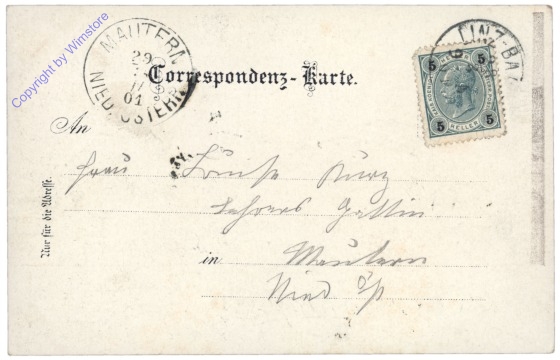 Copyright by Wimstore
MAUTERN
29
01
NIED. ÖSTERR.
LINZ BA
5 5
5 5
HELLER
Correspondenz-Karte.
An
Frau Louise Kurz
Lehrers Gattin
in Mautern
Nied Ö/
Nur für die Adresse.